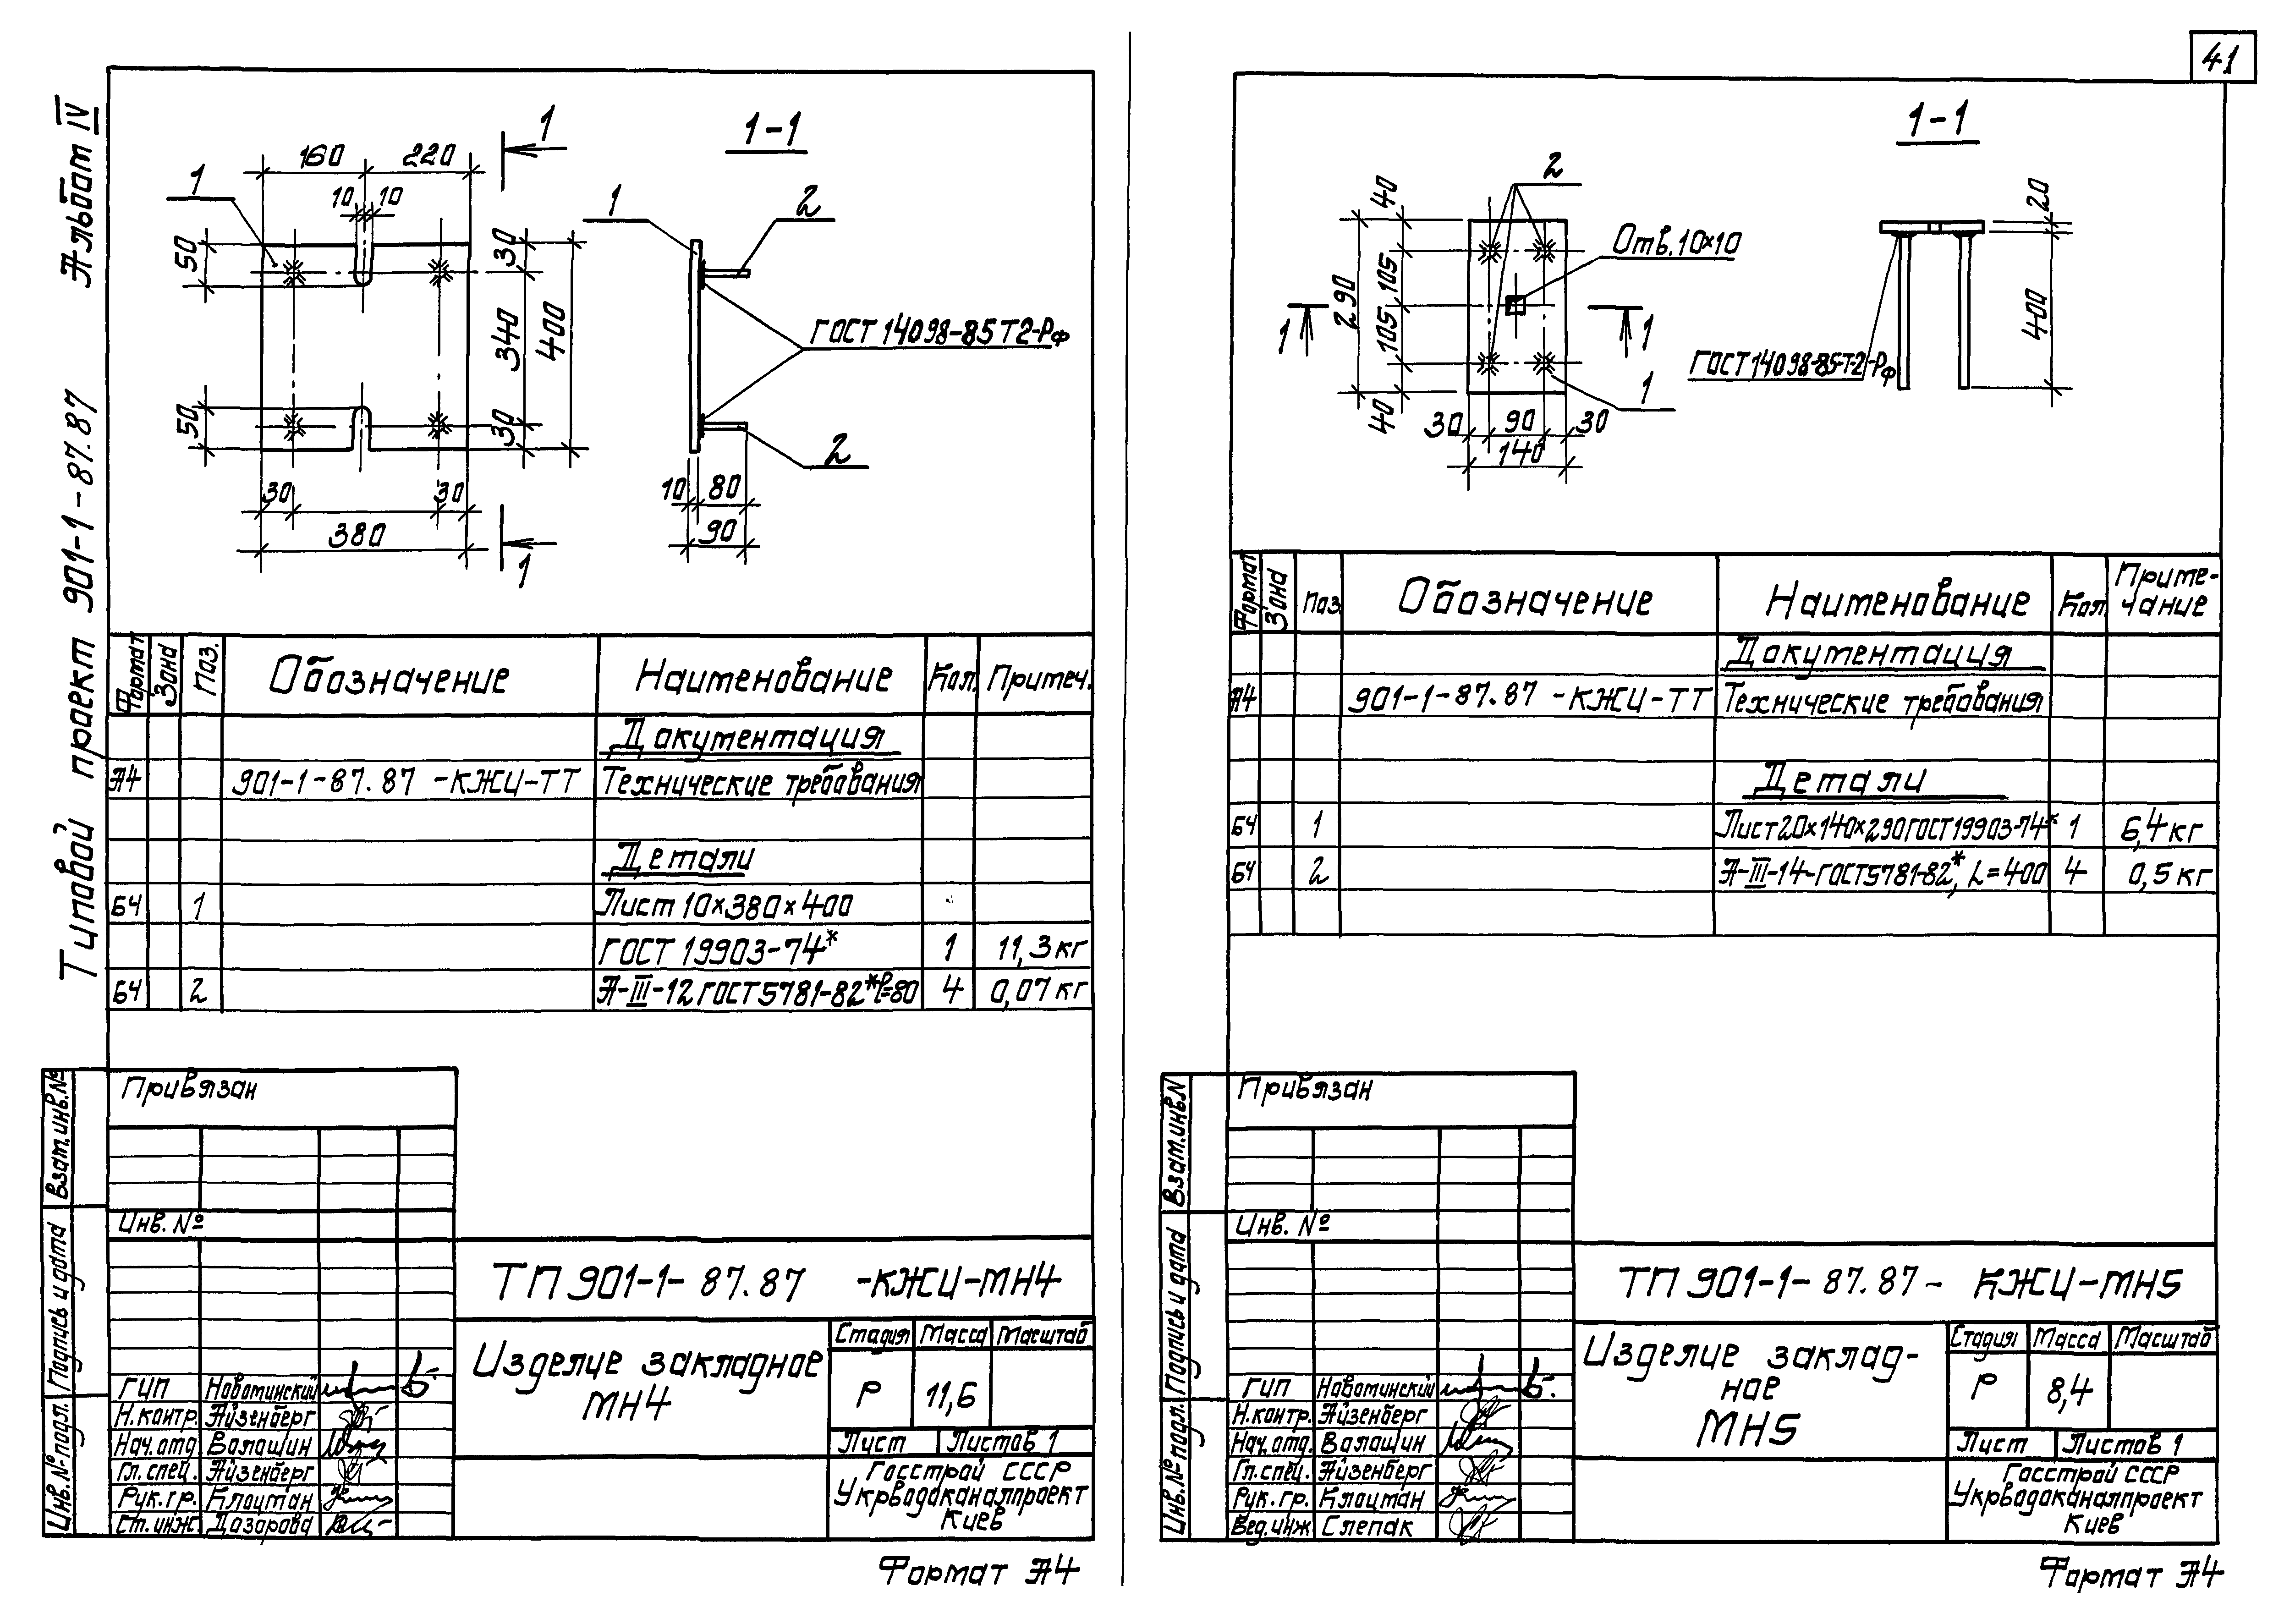 41
Альбом IV
Типовой проект 901-1-87.87
1
1-1
160
220
10
10
1
50
30
340
400
50
30
30
30
380
1
1
2
ГОСТ 14098-85 Т2-Рф
2
10
80
90
Формат
Зона
Поз.
Обозначение
Наименование
Кол.
Примеч.
Документация
А4
901-1-87.87 -КЖИ-ТТ
Технические требования
Детали
БЧ
1
Лист 10×380×400
ГОСТ 19903-74*
1
11,3 кг
БЧ
2
А-III-12 ГОСТ 5781-82* ℓ=80
4
0,07 кг
Привязан
Инв. №
Взам.инв.№
Подпись и дата
Инв.№ подл.
ТП 901-1-87.87 -КЖИ-МН4
Изделие закладное
МН4
Стадия
Масса
Масштаб
Р
11,6
Лист
Листов 1
Госстрой СССР
Укрводоканалпроект
Киев
ГИП Новоминский
Н.контр. Айзенберг
Нач.отд. Волошин
Гл.спец. Айзенберг
Рук.гр. Клоцман
Ст.инж.
Формат А4
1-1
2
40
105
290
105
40
Отв.10×10
1
1
1
30
90
30
140
20
400
ГОСТ 14098-85-Т-2-Рф
Формат
Зона
Поз.
Обозначение
Наименование
Кол.
Приме-
чание
Документация
А4
901-1-87.87 -КЖИ-ТТ
Технические требования
Детали
БЧ
1
Лист 20×140×290 ГОСТ 19903-74*
1
6,4 кг
БЧ
2
А-III-14-ГОСТ 5781-82*, L=400
4
0,5 кг
Привязан
Инв. №
Взам.инв.N
Подпись и дата
Инв.№ подл.
ТП 901-1-87.87- КЖИ-МН5
Изделие заклад-
ное
МН5
Стадия
Масса
Масштаб
Р
8,4
Лист
Листов 1
Госстрой СССР
Укрводоканалпроект
Киев
ГИП Новоминский
Н.контр. Айзенберг
Нач.отд. Волошин
Гл.спец. Айзенберг
Рук.гр. Клоцман
Вед.инж Слепак
Формат А4